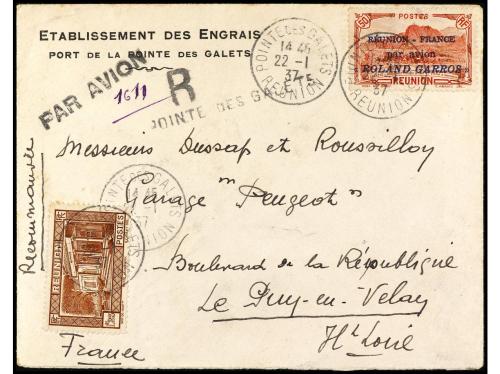 ETABLISSEMENT DES ENGRAIS
PORT DE LA POINTE DES GALETS
PAR AVION
1611
R
POINTE DES GALETS
POINTE DES GALETS
14 45
22 -1
37
REUNION
POSTES
50 RF
RÉUNION - FRANCE
par avion
"ROLAND GARROS"
REUNION
37
REUNION
Messieurs Dussap et Roussilloy
Garage "Peugeot"
Boulevard de la République
Le Puy-en-Velay
Hte Loire
Recommandée
France
POINTE DES GALETS
14 45
REUNION
POSTES